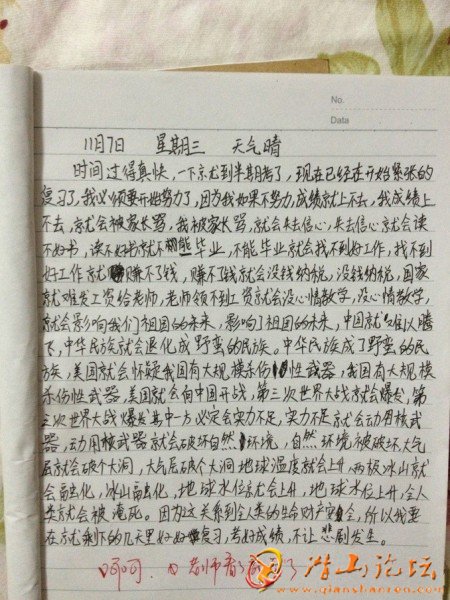 No.
Data
11月7日 星期三 天气晴
时间过得真快,一下就到半期考了,现在已经在开始紧张的
复习了,我必须要开始努力了,因为我如果不努力,成绩就上不去,我成绩上
不去,就会被家长骂,我被家长骂,就会失去信心,失去信心就会读
不好书,读不好书就不能毕业,不能毕业就会找不到好工作,找不到
好工作就赚不了钱,赚不了钱就会没钱纳税,没钱纳税,国家
就难发工资给老师,老师领不到工资就会没心情教学,没心情教学,
就会影响我们祖国的未来,影响了祖国的未来,中国就难以腾
飞,中华民族就会退化成野蛮的民族。中华民族成了野蛮的民
族,美国就会怀疑我国有大规模杀伤性武器,我国有大规模
杀伤性武器,美国就会向中国开战,第三次世界大战就会爆发,第
三次世界大战爆发其中一方必定会实力不足,实力不足就会动用核武
器,动用核武器就会破坏自然环境,自然环境被破坏,大气
层就会破个大洞,大气层破个大洞地球温度就会上升,两极冰山就
会融化,冰山融化,地球水位就会上升,地球水位上升,全人
类就会被淹死。因为这关系到全人类的生命财产安全,所以我要
在就剩下的几天里好好复习,考好成绩,不让悲剧发生。
呵呵,老师看了
潜山论坛
www.qianshanren.com